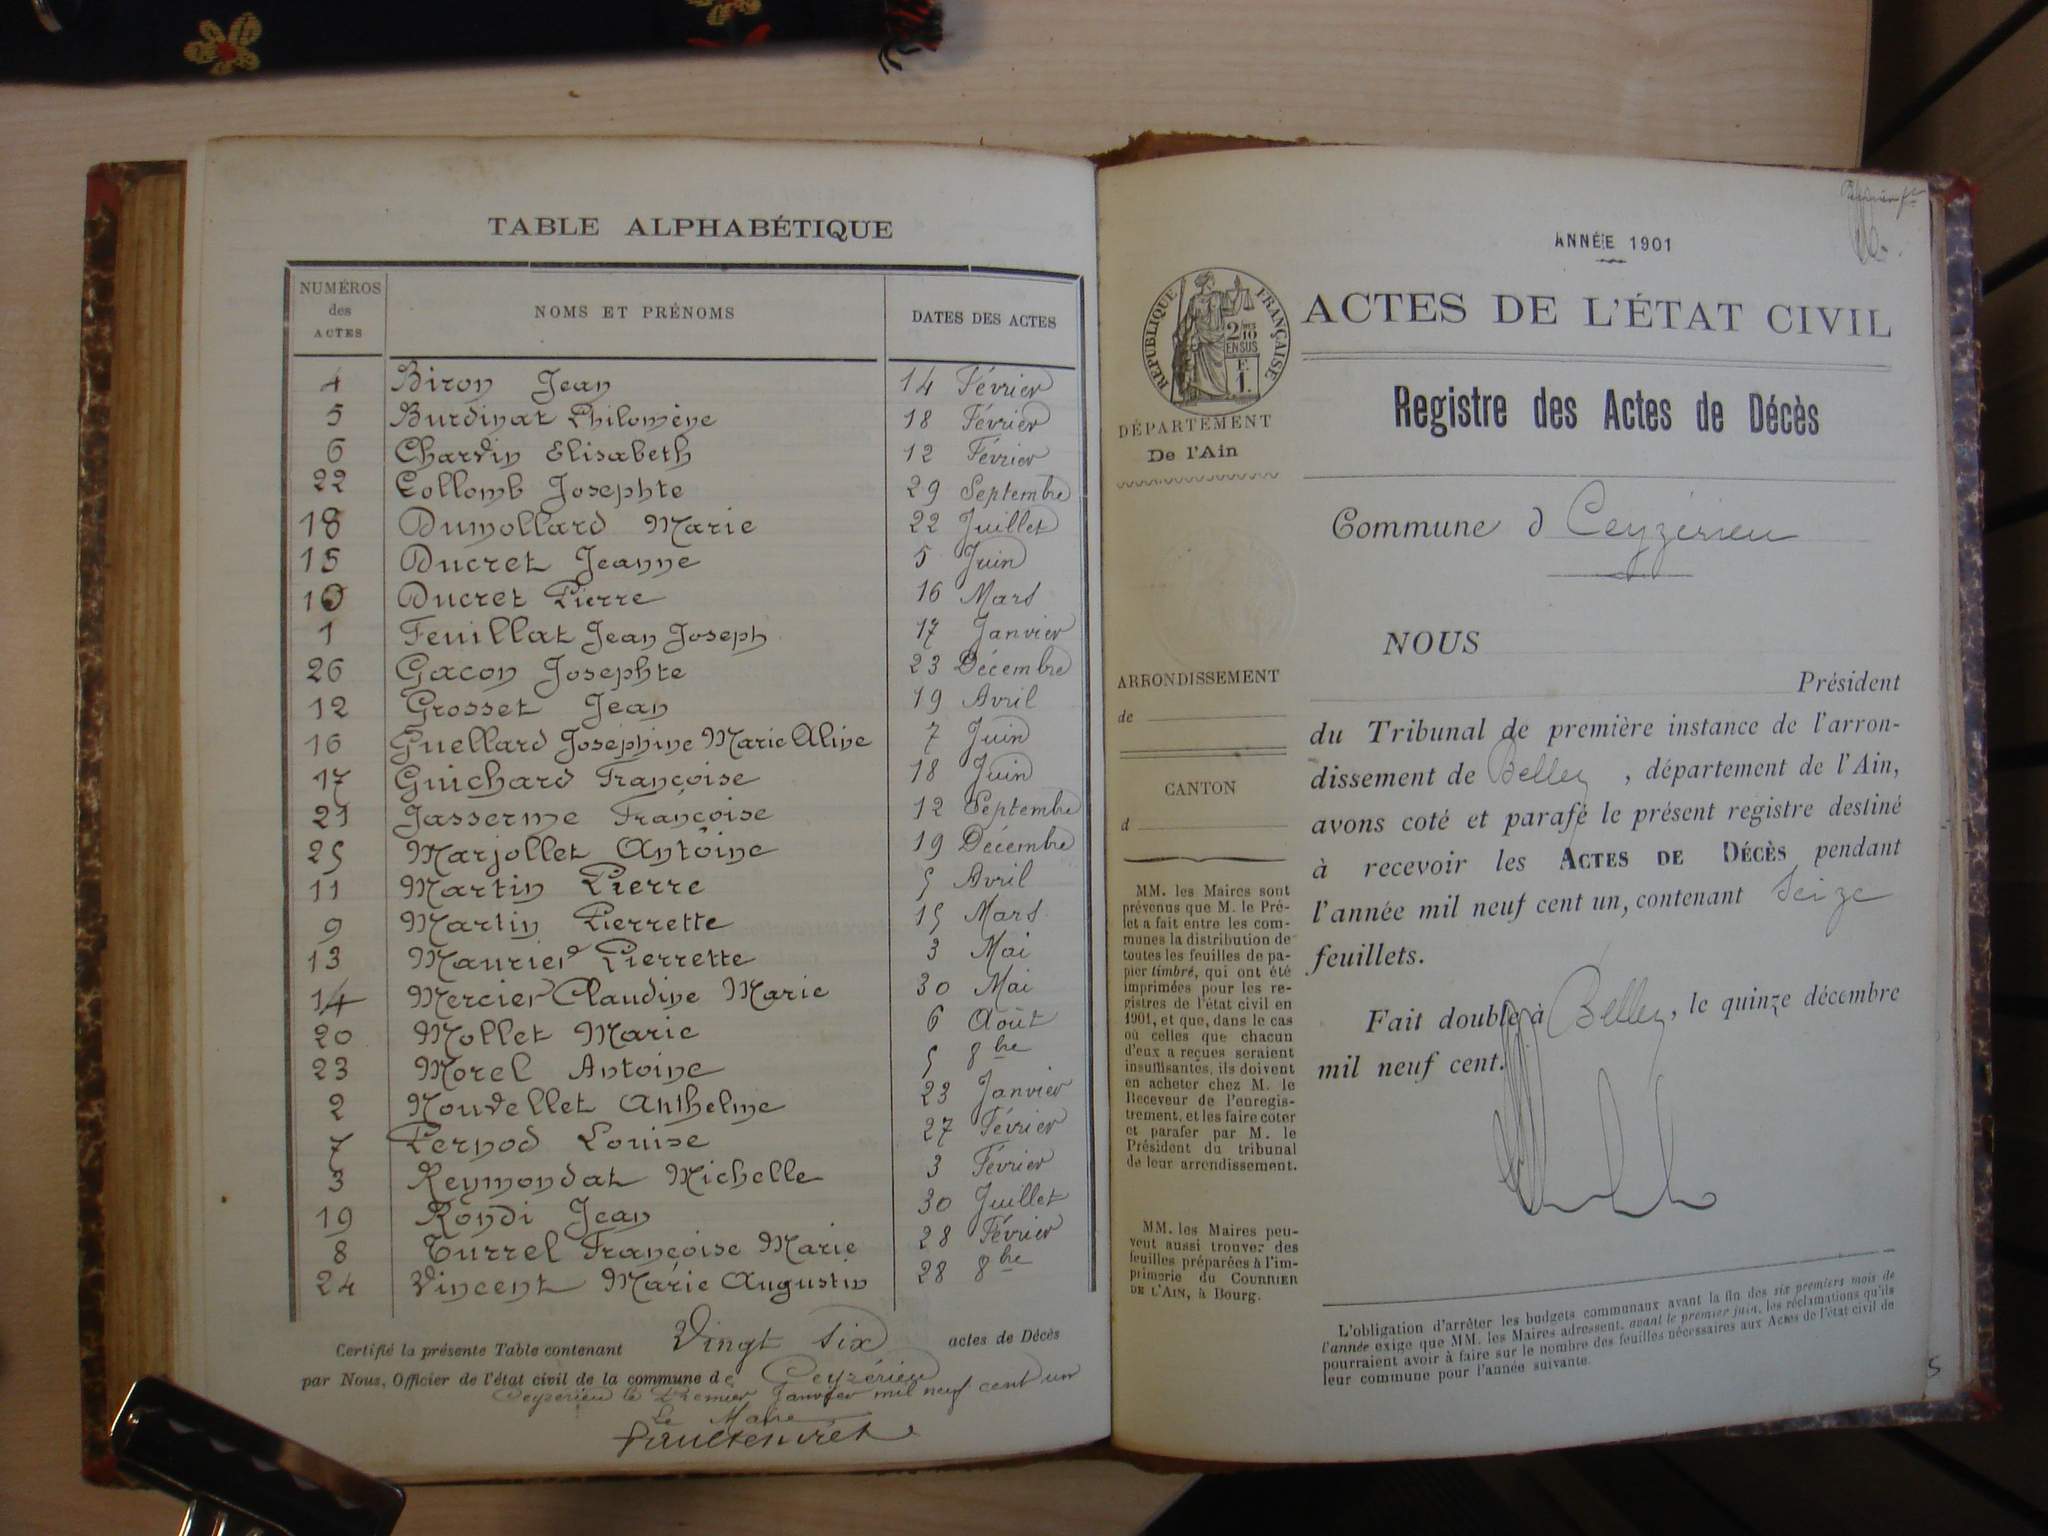 TABLE ALPHABÉTIQUE
NUMÉROS des ACTES NOMS ET PRÉNOMS DATES DES ACTES
4 Biron Jean 14 Février
5 Burdinat Philomène 18 Février
6 Chardin Elisabeth 12 Février
22 Collomb Josephte 29 Septembre
18 Dumollard Marie 22 Juillet
15 Ducret Jeanne 5 Juin
10 Ducret Pierre 16 Mars
1 Feuillat Jean Joseph 17 Janvier
26 Gacon Josephte 23 Décembre
12 Grosset Jean 19 Avril
16 Guellard Joséphine Marie Aline 7 Juin
17 Guichard Françoise 18 Juin
21 Jasserme Françoise 12 Septembre
25 Marjollet Antoine 19 Décembre
11 Martin Pierre 5 Avril
9 Martin Pierrette 15 Mars
13 Maurier Pierrette 3 Mai
14 Mercier Claudine Marie 30 Mai
20 Mollet Marie 6 Août
23 Morel Antoine 5 8bre
2 Nouvellet Anthelme 23 Janvier
7 Pernod Louise 27 Février
3 Reymondat Michelle 3 Février
19 Rondi Jean 30 Juillet
8 Turrel Françoise Marie 28 Février
24 Vincent Marie Augustin 28 8bre
Certifié la présente Table contenant Vingt six actes de Décès
par Nous, Officier de l'état civil de la commune de Ceyzérieu
Ceyzérieu le Premier Janvier mil neuf cent un
Le Maire
ANNÉE 1901
RÉPUBLIQUE FRANÇAISE
2/10 EN SUS
F. 1.
ACTES DE L'ÉTAT CIVIL
Registre des Actes de Décès
DÉPARTEMENT
De l'Ain
Commune d Ceyzérieu
ARRONDISSEMENT
de
CANTON
d
MM. les Maires sont
prévenus que M. le Pré-
let a fait entre les com-
munes la distribution de
toutes les feuilles de pa-
pier timbré, qui ont été
imprimées pour les re-
gistres de l'état civil en
1901, et que, dans le cas
où celles que chacun
d'eux a reçues seraient
insuffisantes, ils doivent
en acheter chez M. le
Receveur de l'enregis-
trement, et les faire coter
et parafer par M. le
Président du tribunal
de leur arrondissement.
MM. les Maires peu-
vent aussi trouver des
feuilles préparées à l'im-
primerie du COURRIER
DE L'AIN, à Bourg.
NOUS
Président
du Tribunal de première instance de l'arron-
dissement de Belley, département de l'Ain,
avons coté et parafé le présent registre destiné
à recevoir les ACTES DE DÉCÈS pendant
l'année mil neuf cent un, contenant Seize
feuillets.
Fait double à Belley, le quinze décembre
mil neuf cent.
L'obligation d'arrêter les budgets communaux avant la fin des six premiers mois de
l'année exige que MM. les Maires adressent, avant le premier juin, les réclamations qu'ils
pourraient avoir à faire sur le nombre des feuilles nécessaires aux Actes de l'état civil de
leur commune pour l'année suivante.